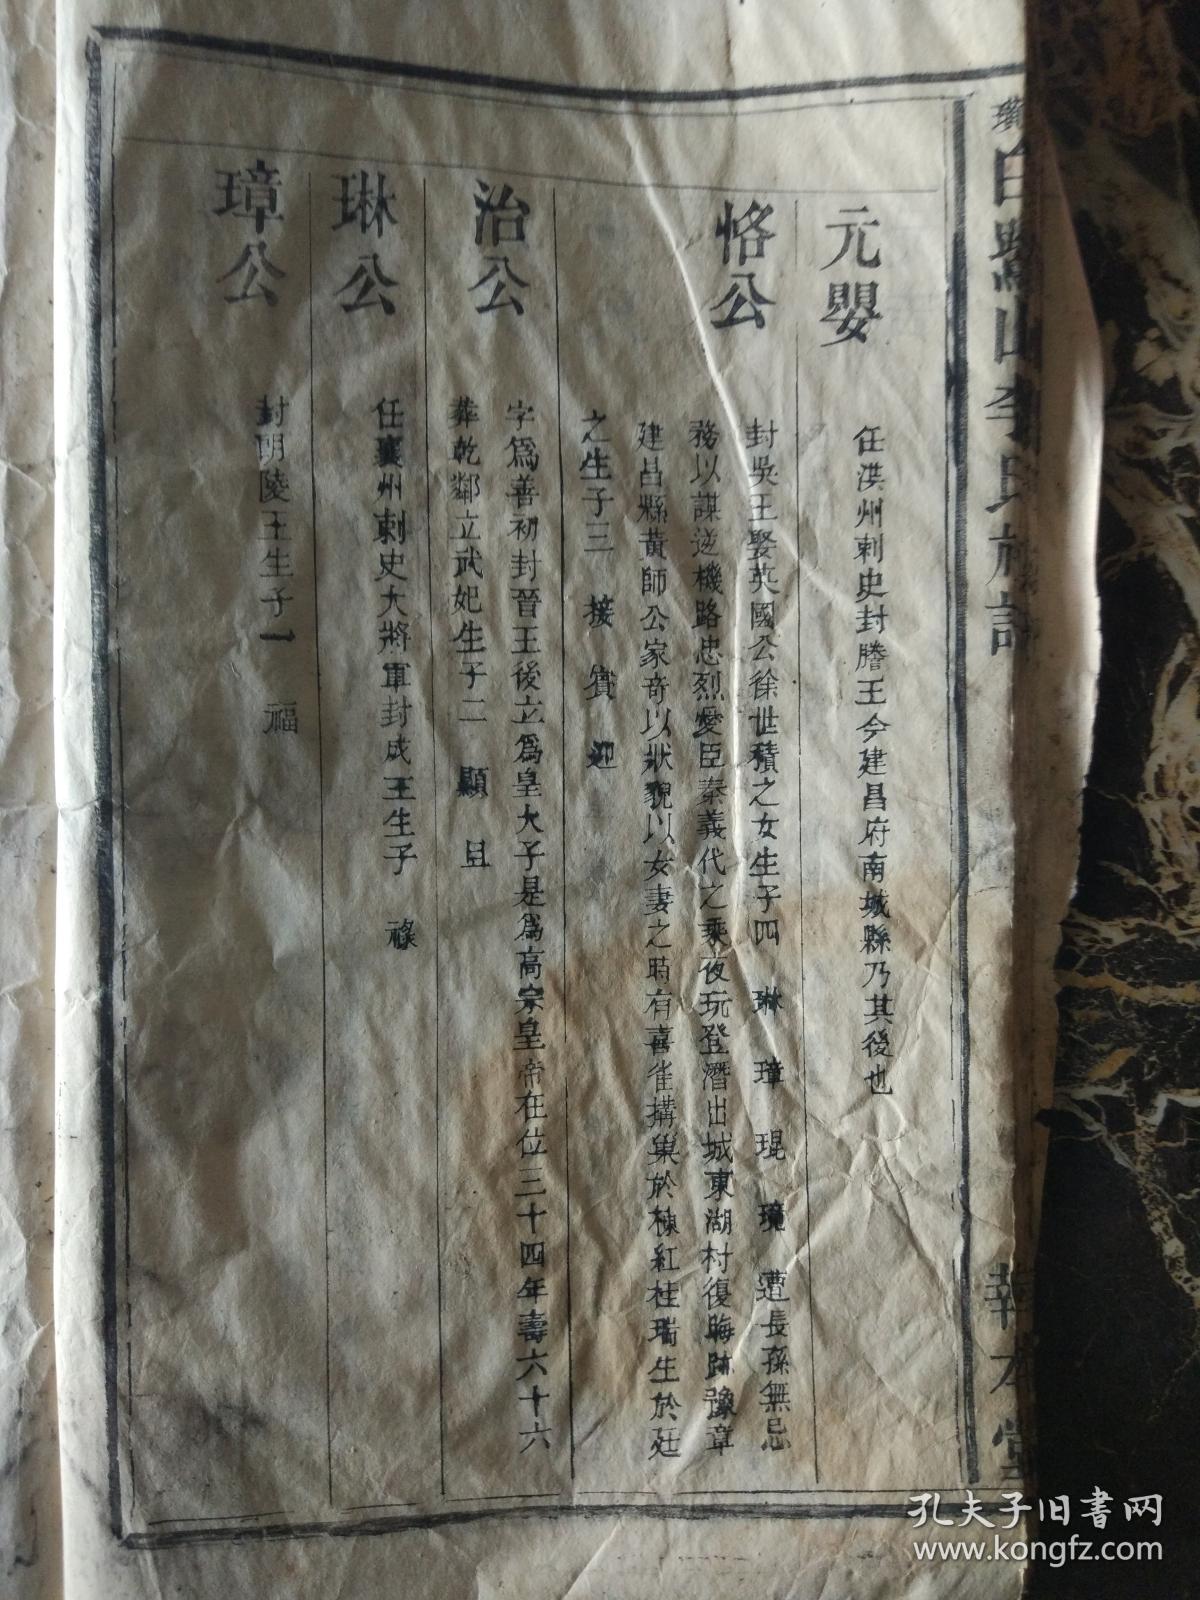 白鷺山李氏族譜
元嬰
任洪州刺史封謄王今建昌府南城縣乃其後也
恪公
封吳王娶英國公徐世積之女生子四 琳 璋 琨 璄 遭長孫無忌
務以謀逆機路忠烈愛臣秦義代之乘夜玩登潛出城東湖村復晦跡豫章
建昌縣黃師公家奇以狀貌以女妻之時有喜雀搆巢於棟紅桂瑞生於廷
之生子三 接 賓 迎
治公
字為善初封晉王後立為皇大子是為高宗皇帝在位三十四年壽六十六
葬乾鄰立武妃生子二 顯 旦
琳公
任襄州刺史大將軍封成王生子 祿
璋公
封朗陵王生子一 福
孔夫子旧书网
www.kongfz.com